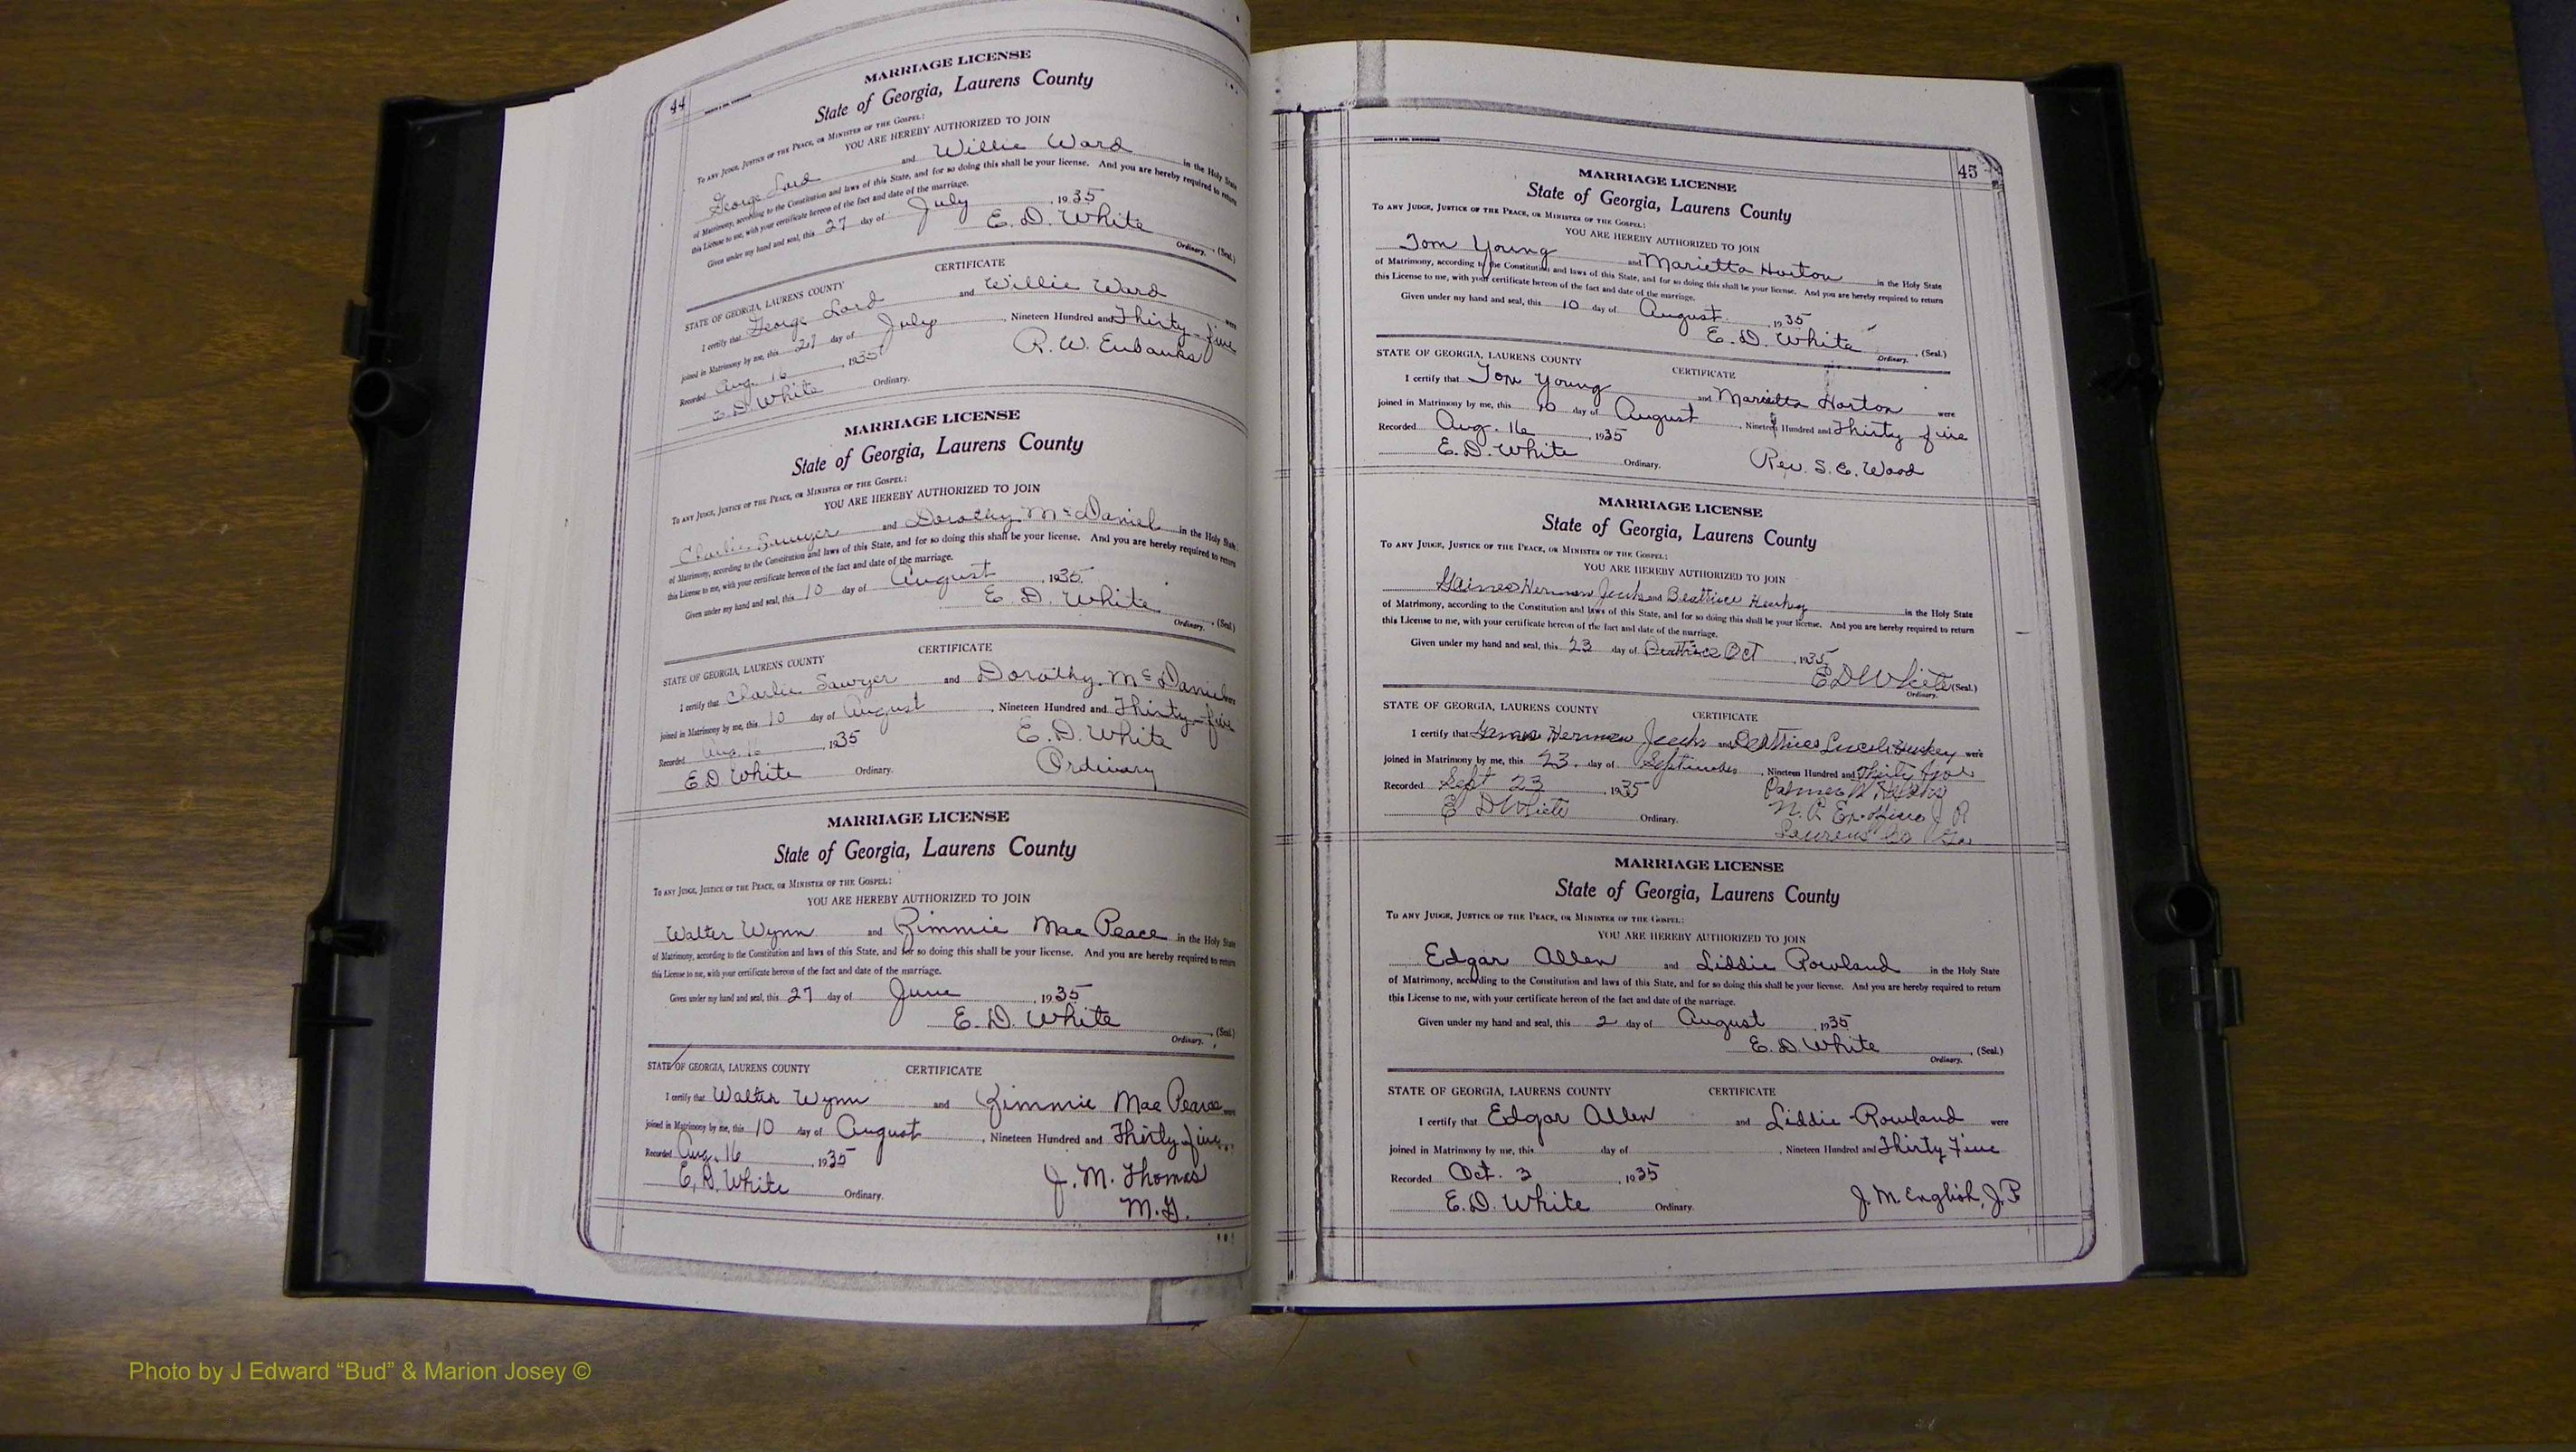 44
MARRIAGE LICENSE
State of Georgia, Laurens County
To any Judge, Justice of the Peace, or Minister of the Gospel:
YOU ARE HEREBY AUTHORIZED TO JOIN
George Lord and Willie Ward in the Holy State
of Matrimony, according to the Constitution and laws of this State, and for so doing this shall be your license. And you are hereby required to return
this License to me, with your certificate hereon of the fact and date of the marriage.
Given under my hand and seal, this 27 day of July, 1935
E. D. White, (Seal.)
Ordinary.
CERTIFICATE
STATE OF GEORGIA, LAURENS COUNTY
I certify that George Lord and Willie Ward were
joined in Matrimony by me, this 27 day of July, Nineteen Hundred and Thirty-five
Recorded Aug. 16, 1935 R. W. Eubanks
E. D. White Ordinary.
MARRIAGE LICENSE
State of Georgia, Laurens County
To any Judge, Justice of the Peace, or Minister of the Gospel:
YOU ARE HEREBY AUTHORIZED TO JOIN
Charlie Sawyer and Dorothy McDaniel in the Holy State
of Matrimony, according to the Constitution and laws of this State, and for so doing this shall be your license. And you are hereby required to return
this License to me, with your certificate hereon of the fact and date of the marriage.
Given under my hand and seal, this 10 day of August, 1935
E. D. White, (Seal.)
Ordinary.
CERTIFICATE
STATE OF GEORGIA, LAURENS COUNTY
I certify that Charlie Sawyer and Dorothy McDaniel were
joined in Matrimony by me, this 10 day of August, Nineteen Hundred and Thirty-five
Recorded Aug. 16, 1935 E. D. White
E. D. White Ordinary. Ordinary
MARRIAGE LICENSE
State of Georgia, Laurens County
To any Judge, Justice of the Peace, or Minister of the Gospel:
YOU ARE HEREBY AUTHORIZED TO JOIN
Walter Wynn and Rimmie Mae Peace in the Holy State
of Matrimony, according to the Constitution and laws of this State, and for so doing this shall be your license. And you are hereby required to return
this License to me, with your certificate hereon of the fact and date of the marriage.
Given under my hand and seal, this 27 day of June, 1935
E. D. White, (Seal.)
Ordinary.
STATE OF GEORGIA, LAURENS COUNTY CERTIFICATE
I certify that Walter Wynn and Rimmie Mae Pearce were
joined in Matrimony by me, this 10 day of August, Nineteen Hundred and Thirty five
Recorded Aug. 16, 1935
E. D. White Ordinary. J. M. Thomas
M. G.
45
MARRIAGE LICENSE
State of Georgia, Laurens County
To any Judge, Justice of the Peace, or Minister of the Gospel:
YOU ARE HEREBY AUTHORIZED TO JOIN
Tom Young and Marietta Horton in the Holy State
of Matrimony, according to the Constitution and laws of this State, and for so doing this shall be your license. And you are hereby required to return
this License to me, with your certificate hereon of the fact and date of the marriage.
Given under my hand and seal, this 10 day of August, 1935
E. D. White, (Seal.)
Ordinary.
STATE OF GEORGIA, LAURENS COUNTY CERTIFICATE
I certify that Tom Young and Marietta Horton were
joined in Matrimony by me, this 10 day of August, Nineteen Hundred and Thirty five
Recorded Aug. 16, 1935
E. D. White Ordinary. Rev. S. E. Wood
MARRIAGE LICENSE
State of Georgia, Laurens County
To any Judge, Justice of the Peace, or Minister of the Gospel:
YOU ARE HEREBY AUTHORIZED TO JOIN
Gaines Herman and Beatrice in the Holy State
of Matrimony, according to the Constitution and laws of this State, and for so doing this shall be your license. And you are hereby required to return
this License to me, with your certificate hereon of the fact and date of the marriage.
Given under my hand and seal, this 23 day of Oct, 1935
E D White (Seal.)
Ordinary.
STATE OF GEORGIA, LAURENS COUNTY CERTIFICATE
I certify that Herman and Beatrice were
joined in Matrimony by me, this 23 day of September, Nineteen Hundred and Thirty five
Recorded Sept 23, 1935
E D White Ordinary. N. P. Ex officio J P
Laurens Co Ga
MARRIAGE LICENSE
State of Georgia, Laurens County
To any Judge, Justice of the Peace, or Minister of the Gospel:
YOU ARE HEREBY AUTHORIZED TO JOIN
Edgar Allen and Liddie Rowland in the Holy State
of Matrimony, according to the Constitution and laws of this State, and for so doing this shall be your license. And you are hereby required to return
this License to me, with your certificate hereon of the fact and date of the marriage.
Given under my hand and seal, this 2 day of August, 1935
E. D. White, (Seal.)
Ordinary.
STATE OF GEORGIA, LAURENS COUNTY CERTIFICATE
I certify that Edgar Allen and Liddie Rowland were
joined in Matrimony by me, this day of, Nineteen Hundred and Thirty Five
Recorded Oct. 3, 1935
E. D. White Ordinary. J. M. English, J. P
Photo by J Edward “Bud” & Marion Josey ©